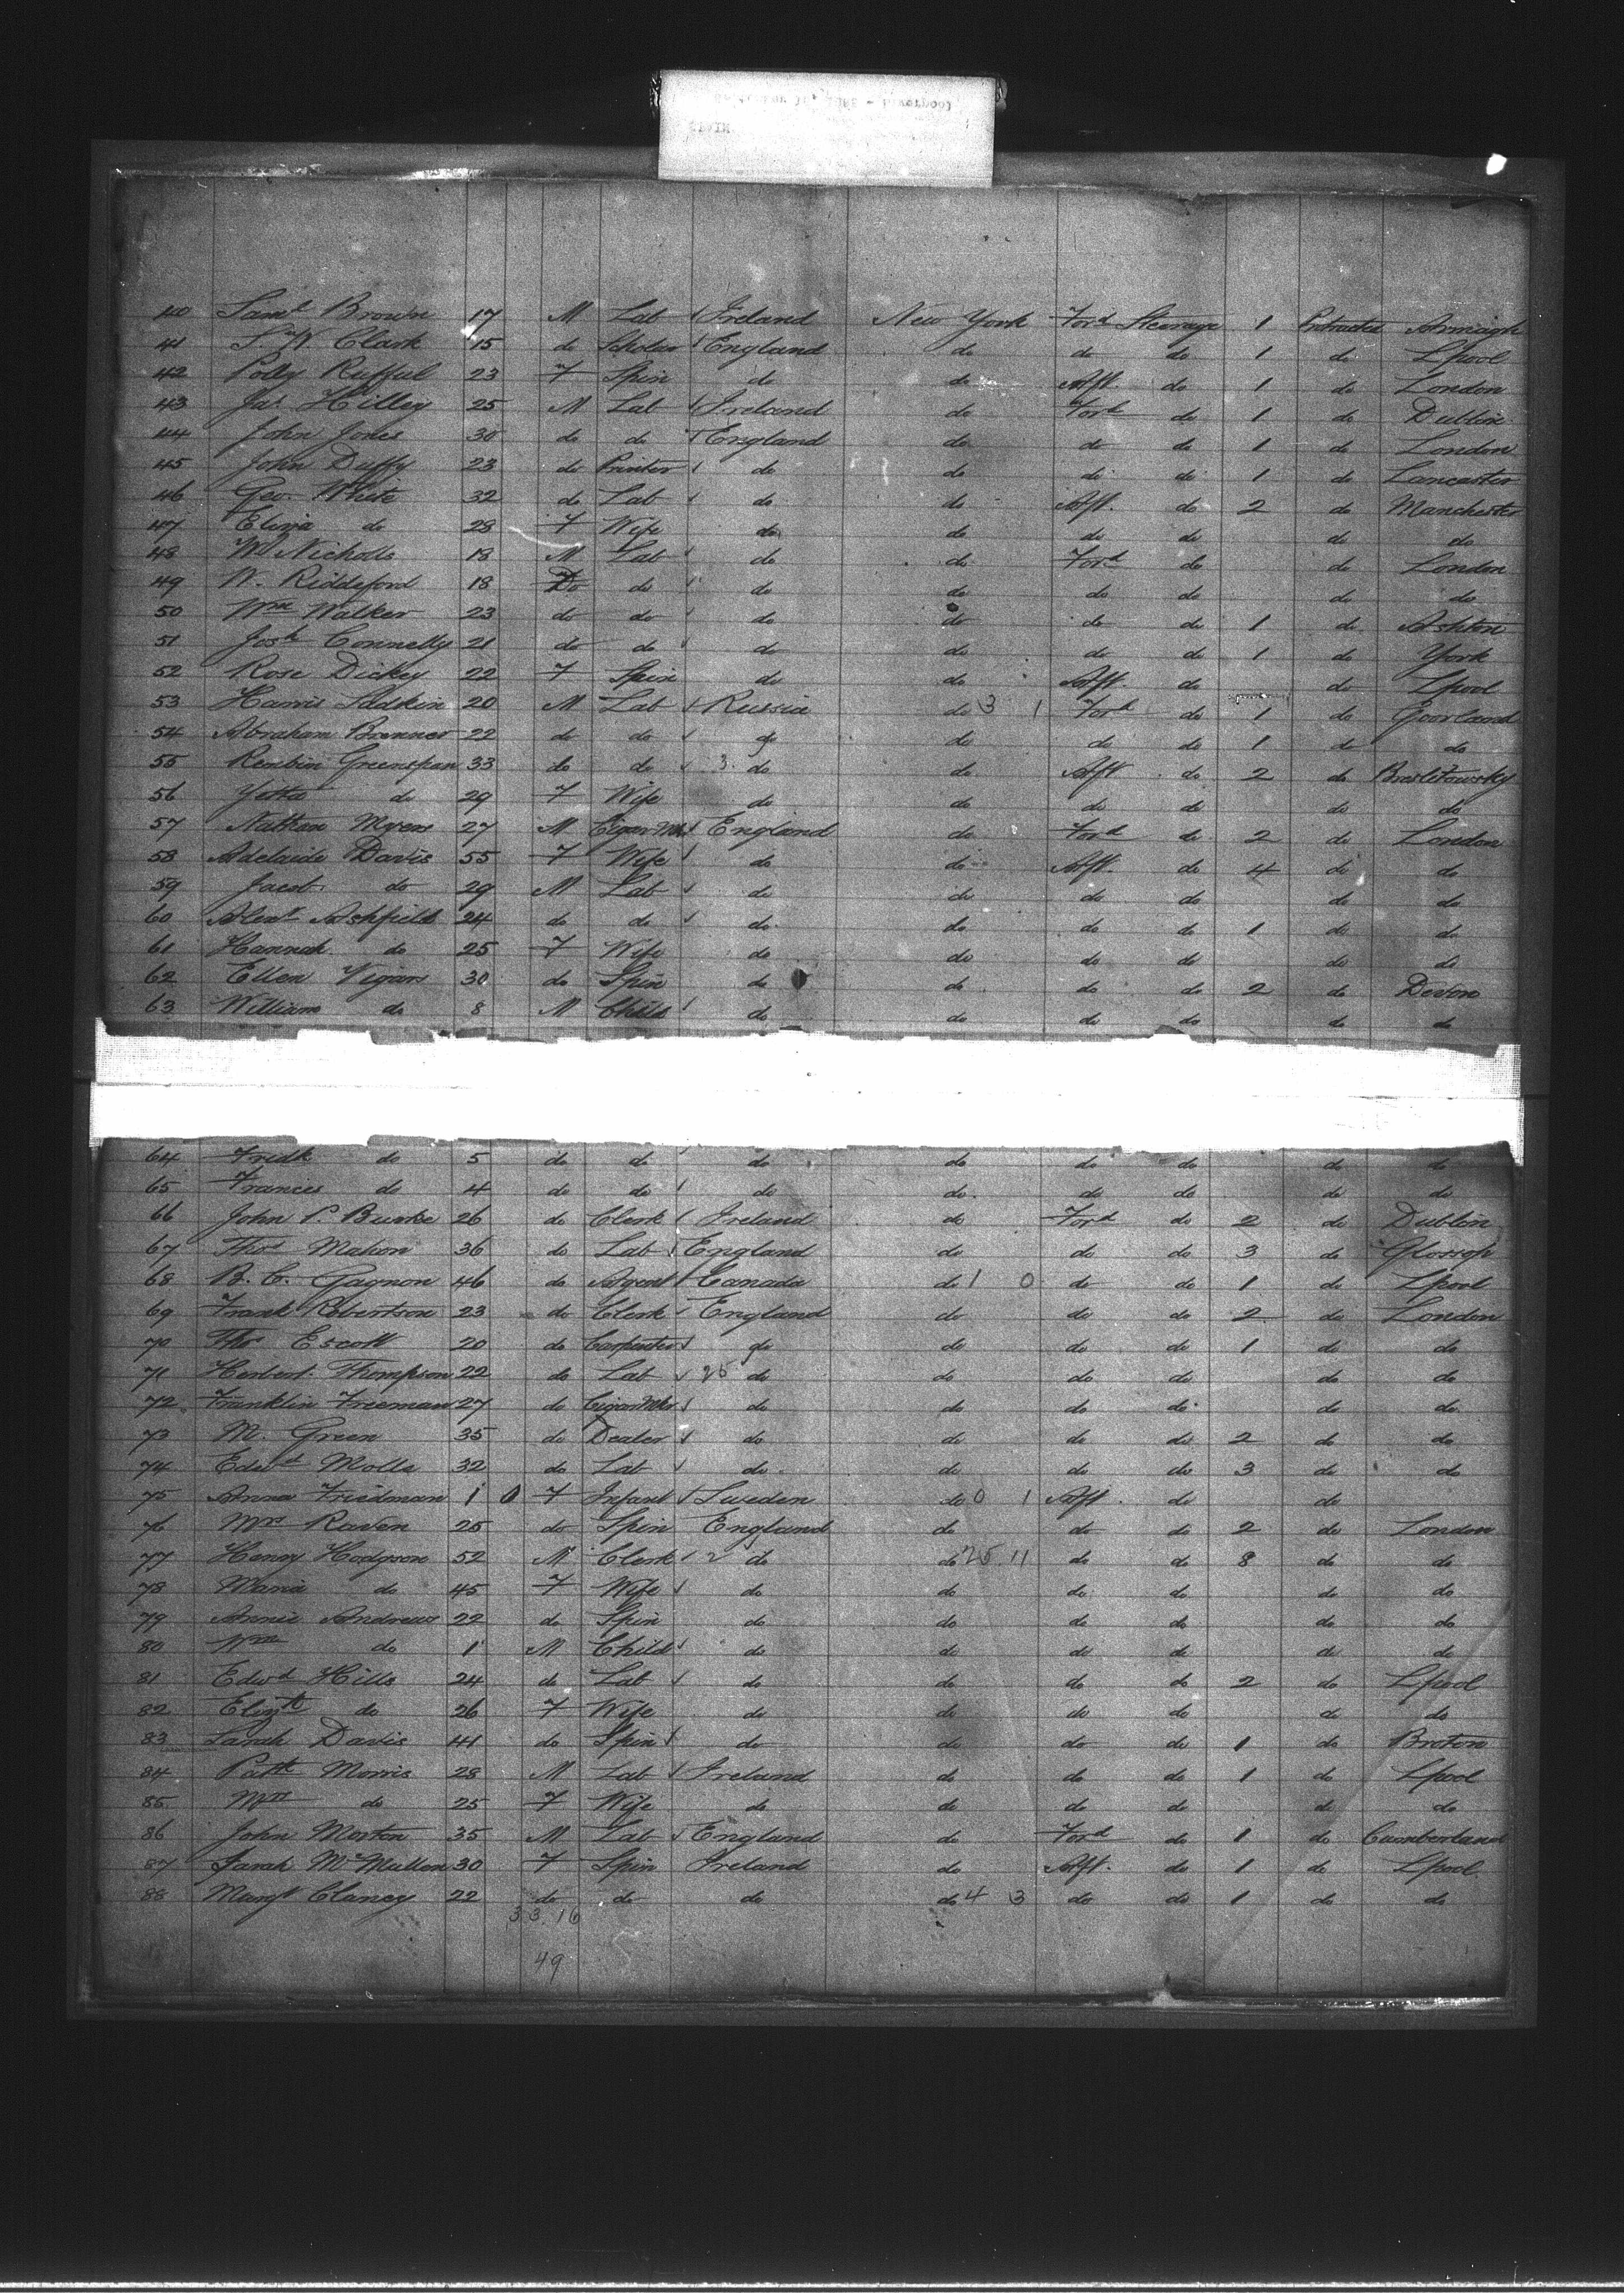 40 Saml Brown 17 M Lab Ireland New York Ford Steerage 1 Protracted Armagh
41 S. W Clark 15 do Scholar England do do do 1 do Lpool
42 Polly Rufful 23 F Spin do do Aft do 1 do London
43 Jas Hilley 25 M Lab Ireland do Ford do 1 do Dublin
44 John Jones 30 do do England do do do 1 do London
45 John Duffy 23 do Printer do do do do 1 do Lancaster
46 Geo. White 32 do Lab do do Aft. do 2 do Manchester
47 Eliza do 28 F Wife do do do do do do
48 Wm Nicholls 18 M Lab do do Ford do do London
49 W. Riddeford 18 Do do do do do do do do
50 Wm Walker 23 do do do do do do 1 do Ashton
51 Josh Connelly 21 do do do do do do 1 do York
52 Rose Dickey 22 F Spin do do Aft. do do Lpool
53 Harris 20 M Lab Russia do 3 1 Ford do 1 do Goorland
54 Abraham Brenner 22 do do do do do do 1 do do
55 Reubin Greenspan 33 do do 3. do do Aft do 2 do
56 Yetta do 29 F Wife do do do do do do
57 Nathan Myers 27 M Cigar Mkr England do Ford do 2 do London
58 Adelaide Davis 55 F Wife do do Aft. do 4 do do
59 Jacob do 29 M Lab do do do do do do
60 Alexr Ashfield 24 do do do do do do 1 do do
61 Hannah do 25 F Wife do do do do do do
62 Ellen Vigars 30 do Spin do do do do 2 do Devon
63 William do 8 M Child do do do do do do
64 Fredk do 5 do do do do do do do do
65 Frances do 4 do do do do do do do do
66 John P. Burke 26 do Clerk Ireland do Ford do 2 do Dublin
67 Thos Mahon 36 do Lab England do do do 3 do Glossop
68 B. C. Gagnon 46 do Agent Canada do 1 0 do do 1 do Lpool
69 Frank Robertson 23 do Clerk England do do do 2 do London
70 Thos Escott 20 do Carpenter do do do do 1 do do
71 Herbert Thompson 22 do Lab 25 do do do do do do
72 Franklin Freeman 27 do Cigar Mkr do do do do do do
73 M. Green 35 do Dealer do do do do 2 do do
74 Edwd Molls 32 do Lab do do do do 3 do do
75 Anna Friedman 1 0 F Infant Sweden do 0 1 Aft. do do
76 Mrs Raven 25 do Spin England do do do 2 do London
77 Henry Hodgson 52 M Clerk 2 do do 25 11 do do 8 do do
78 Maria do 45 F Wife do do do do do do
79 Annie Andrews 22 do Spin do do do do do do
80 Wm do 1 M Child do do do do do do
81 Edwd Hills 24 do Lab do do do do 2 do Lpool
82 Elizth do 26 F Wife do do do do do do
83 Sarah Davis 41 do Spin do do do do 1 do Broton
84 Patk Morris 28 M Lab Ireland do do do 1 do Lpool
85 Mrs do 25 F Wife do do do do do do
86 John Morton 35 M Lab England do Ford do 1 do Cumberland
87 Sarah McMullen 30 F Spin Ireland do Aft. do 1 do Lpool
88 Margt Clancy 22 do do do do 4 3 do do 1 do do
33. 16
49